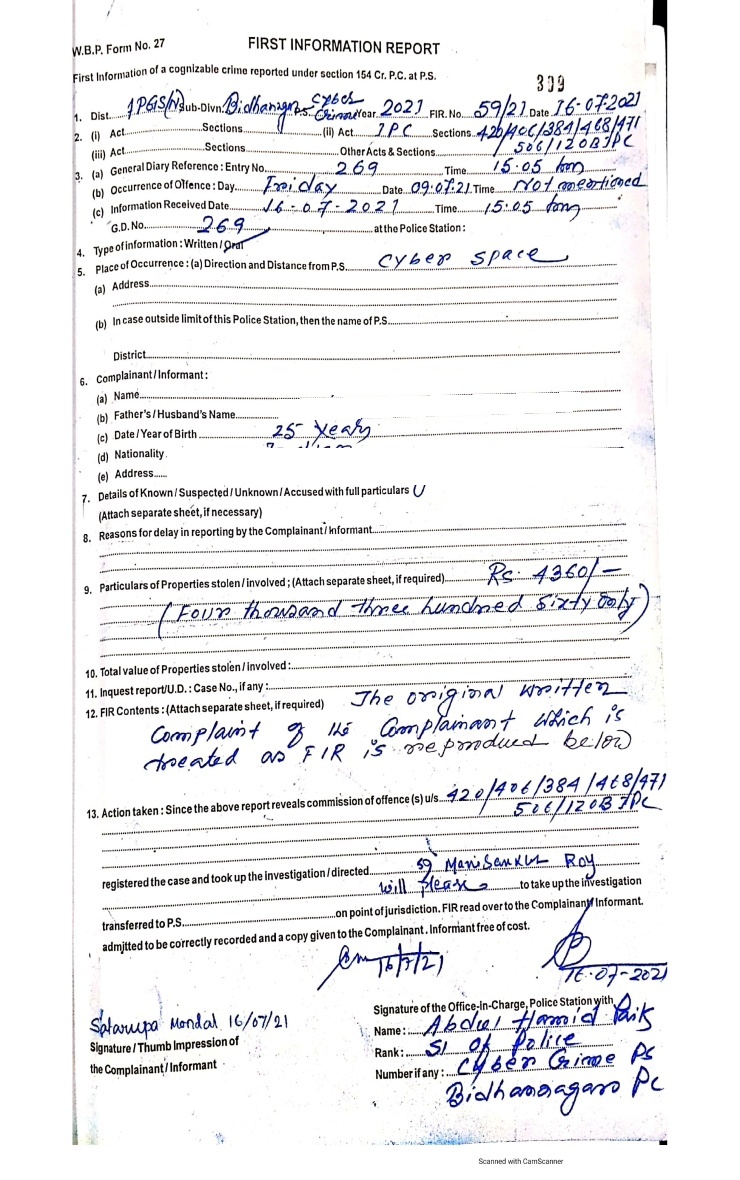 W.B.P. Form No. 27
FIRST INFORMATION REPORT
First Information of a cognizable crime reported under section 154 Cr. P.C. at P.S.
399
1. Dist. 1PGS(N) Sub-Divn. Bidhannagar P.S. Cyber Crime Year 2021 FIR. No. 59/21 Date 16-07-2021
2. (i) Act Sections (ii) Act IPC Sections 420/406/384/468/471
(iii) Act Sections Other Acts & Sections 506/120B IPC
3. (a) General Diary Reference : Entry No. 269 Time 15:05 hrs
(b) Occurrence of Offence : Day Friday Date 09.07.21 Time Not mentioned
(c) Information Received Date 16-07-2021 Time 15:05 hrs
G.D. No. 269 at the Police Station :
4. Type of information : Written / Oral
5. Place of Occurrence : (a) Direction and Distance from P.S. Cyber Space
(a) Address
(b) In case outside limit of this Police Station, then the name of P.S.
District
6. Complainant / Informant :
(a) Name
(b) Father's / Husband's Name
(c) Date / Year of Birth 25 Years
(d) Nationality
(e) Address
7. Details of Known / Suspected / Unknown / Accused with full particulars U
(Attach separate sheet, if necessary)
8. Reasons for delay in reporting by the Complainant / Informant
9. Particulars of Properties stolen / involved ; (Attach separate sheet, if required) Rs. 4360/-
(Four thousand three hundred sixty only)
10. Total value of Properties stolen / involved :
11. Inquest report / U.D. : Case No., if any :
12. FIR Contents : (Attach separate sheet, if required) The original written
Complaint of the Complainant which is
treated as FIR is reproduced below
13. Action taken : Since the above report reveals commission of offence (s) u/s. 420/406/384/468/471
506/120B IPC
registered the case and took up the investigation / directed SI Manisankar Roy
will please to take up the investigation
transferred to P.S. on point of jurisdiction. FIR read over to the Complainant / Informant.
admitted to be correctly recorded and a copy given to the Complainant. Informant free of cost.
16/7/21
16-07-2021
Satarupa Mondal 16/07/21
Signature / Thumb Impression of
the Complainant / Informant
Signature of the Office-In-Charge, Police Station with
Name : Abdul Hamid Paik
Rank : SI of Police
Number if any : Cyber Crime PS
Bidhannagar PC
Scanned with CamScanner